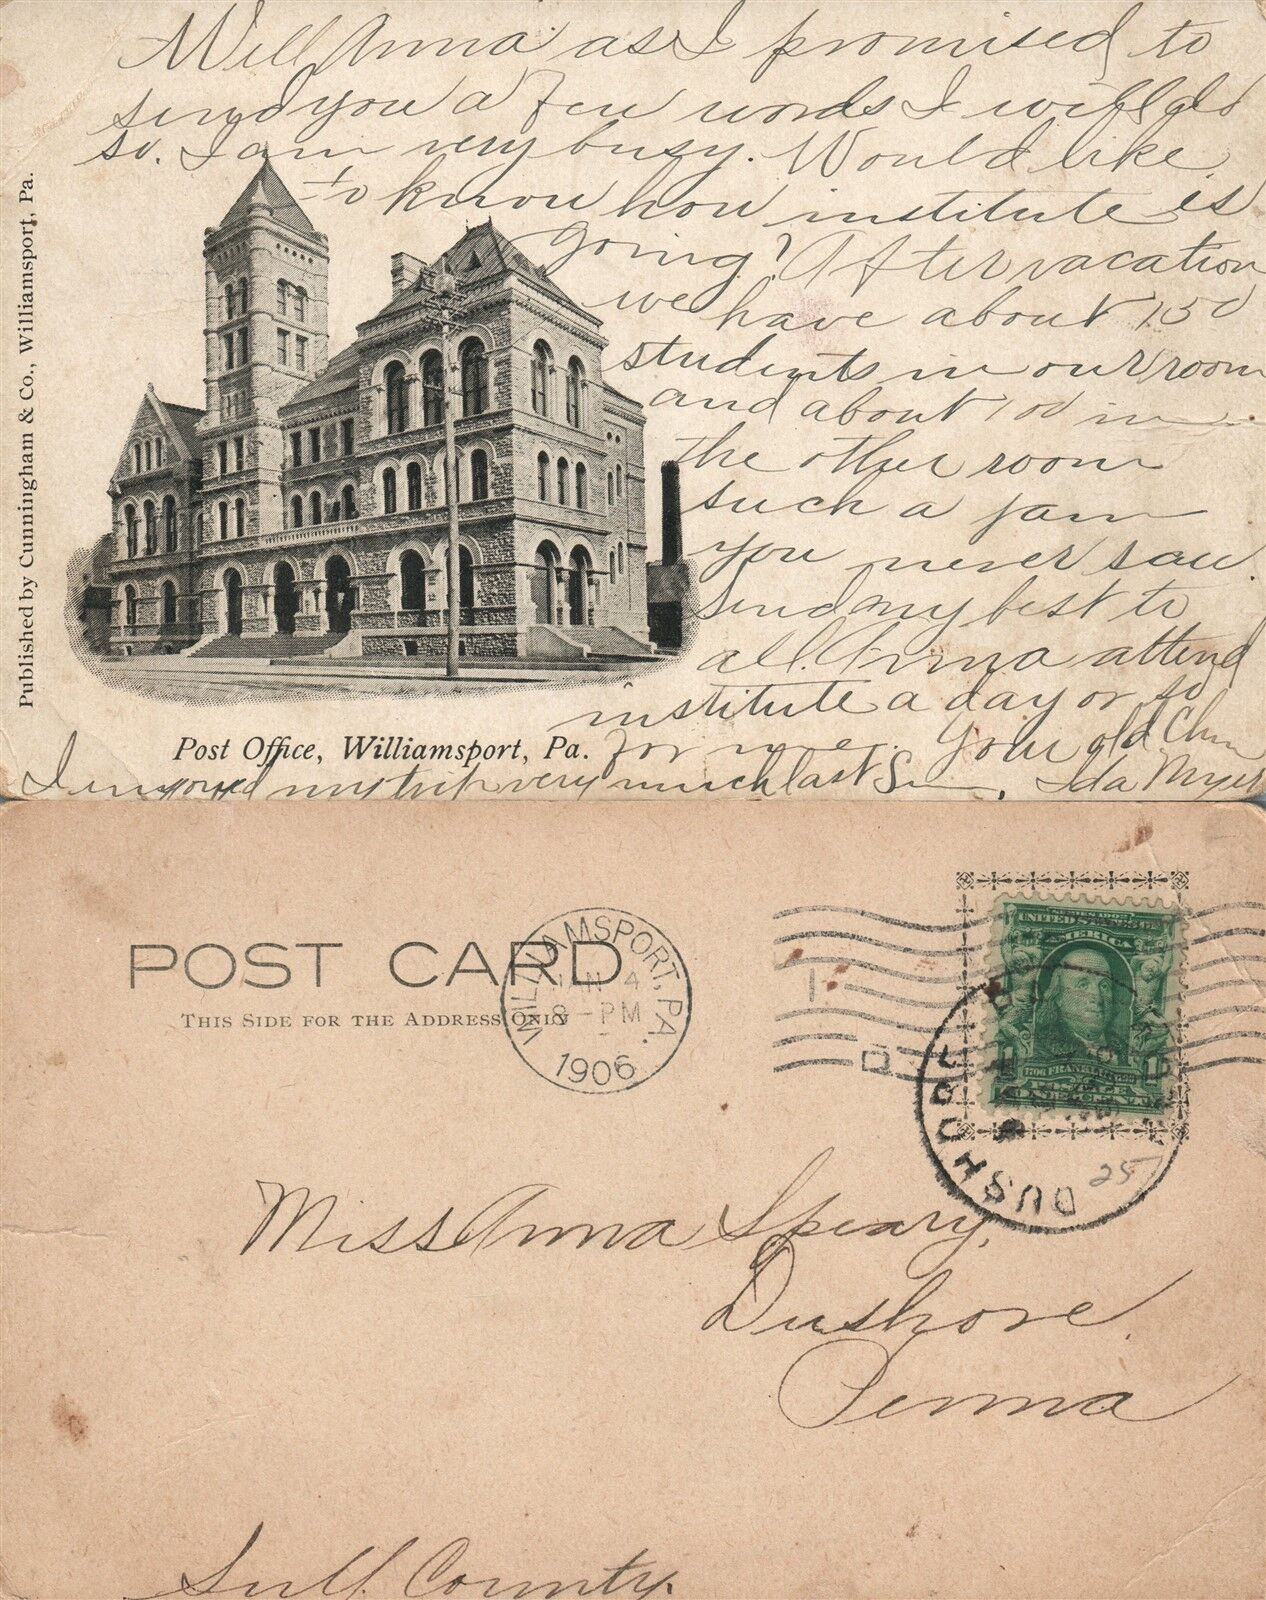 Well Anna as I promised to
send you a few words I will do
so. I am very busy. Would like
to know how institute is
going? After vacation
we have about 150
students in our room
and about 100 in
the other room
such a jam
you never saw.
Send my best to
all. Anna attend
institute a day or so
for me. Your old Chum
Ida Myer
I enyoyed my trip very much last Sun.
Published by Cunningham & Co., Williamsport, Pa.
Post Office, Williamsport, Pa.
POST CARD
THIS SIDE FOR THE ADDRESS ONLY
WILLIAMSPORT, PA.
JAN 4
8-PM
1906
SERIES 1902
UNITED STATES OF
AMERICA
1706 FRANKLIN 1790
POSTAGE
DUSHORE
25
Miss Anna Speary,
Dushore.
Penna
Sull. County.